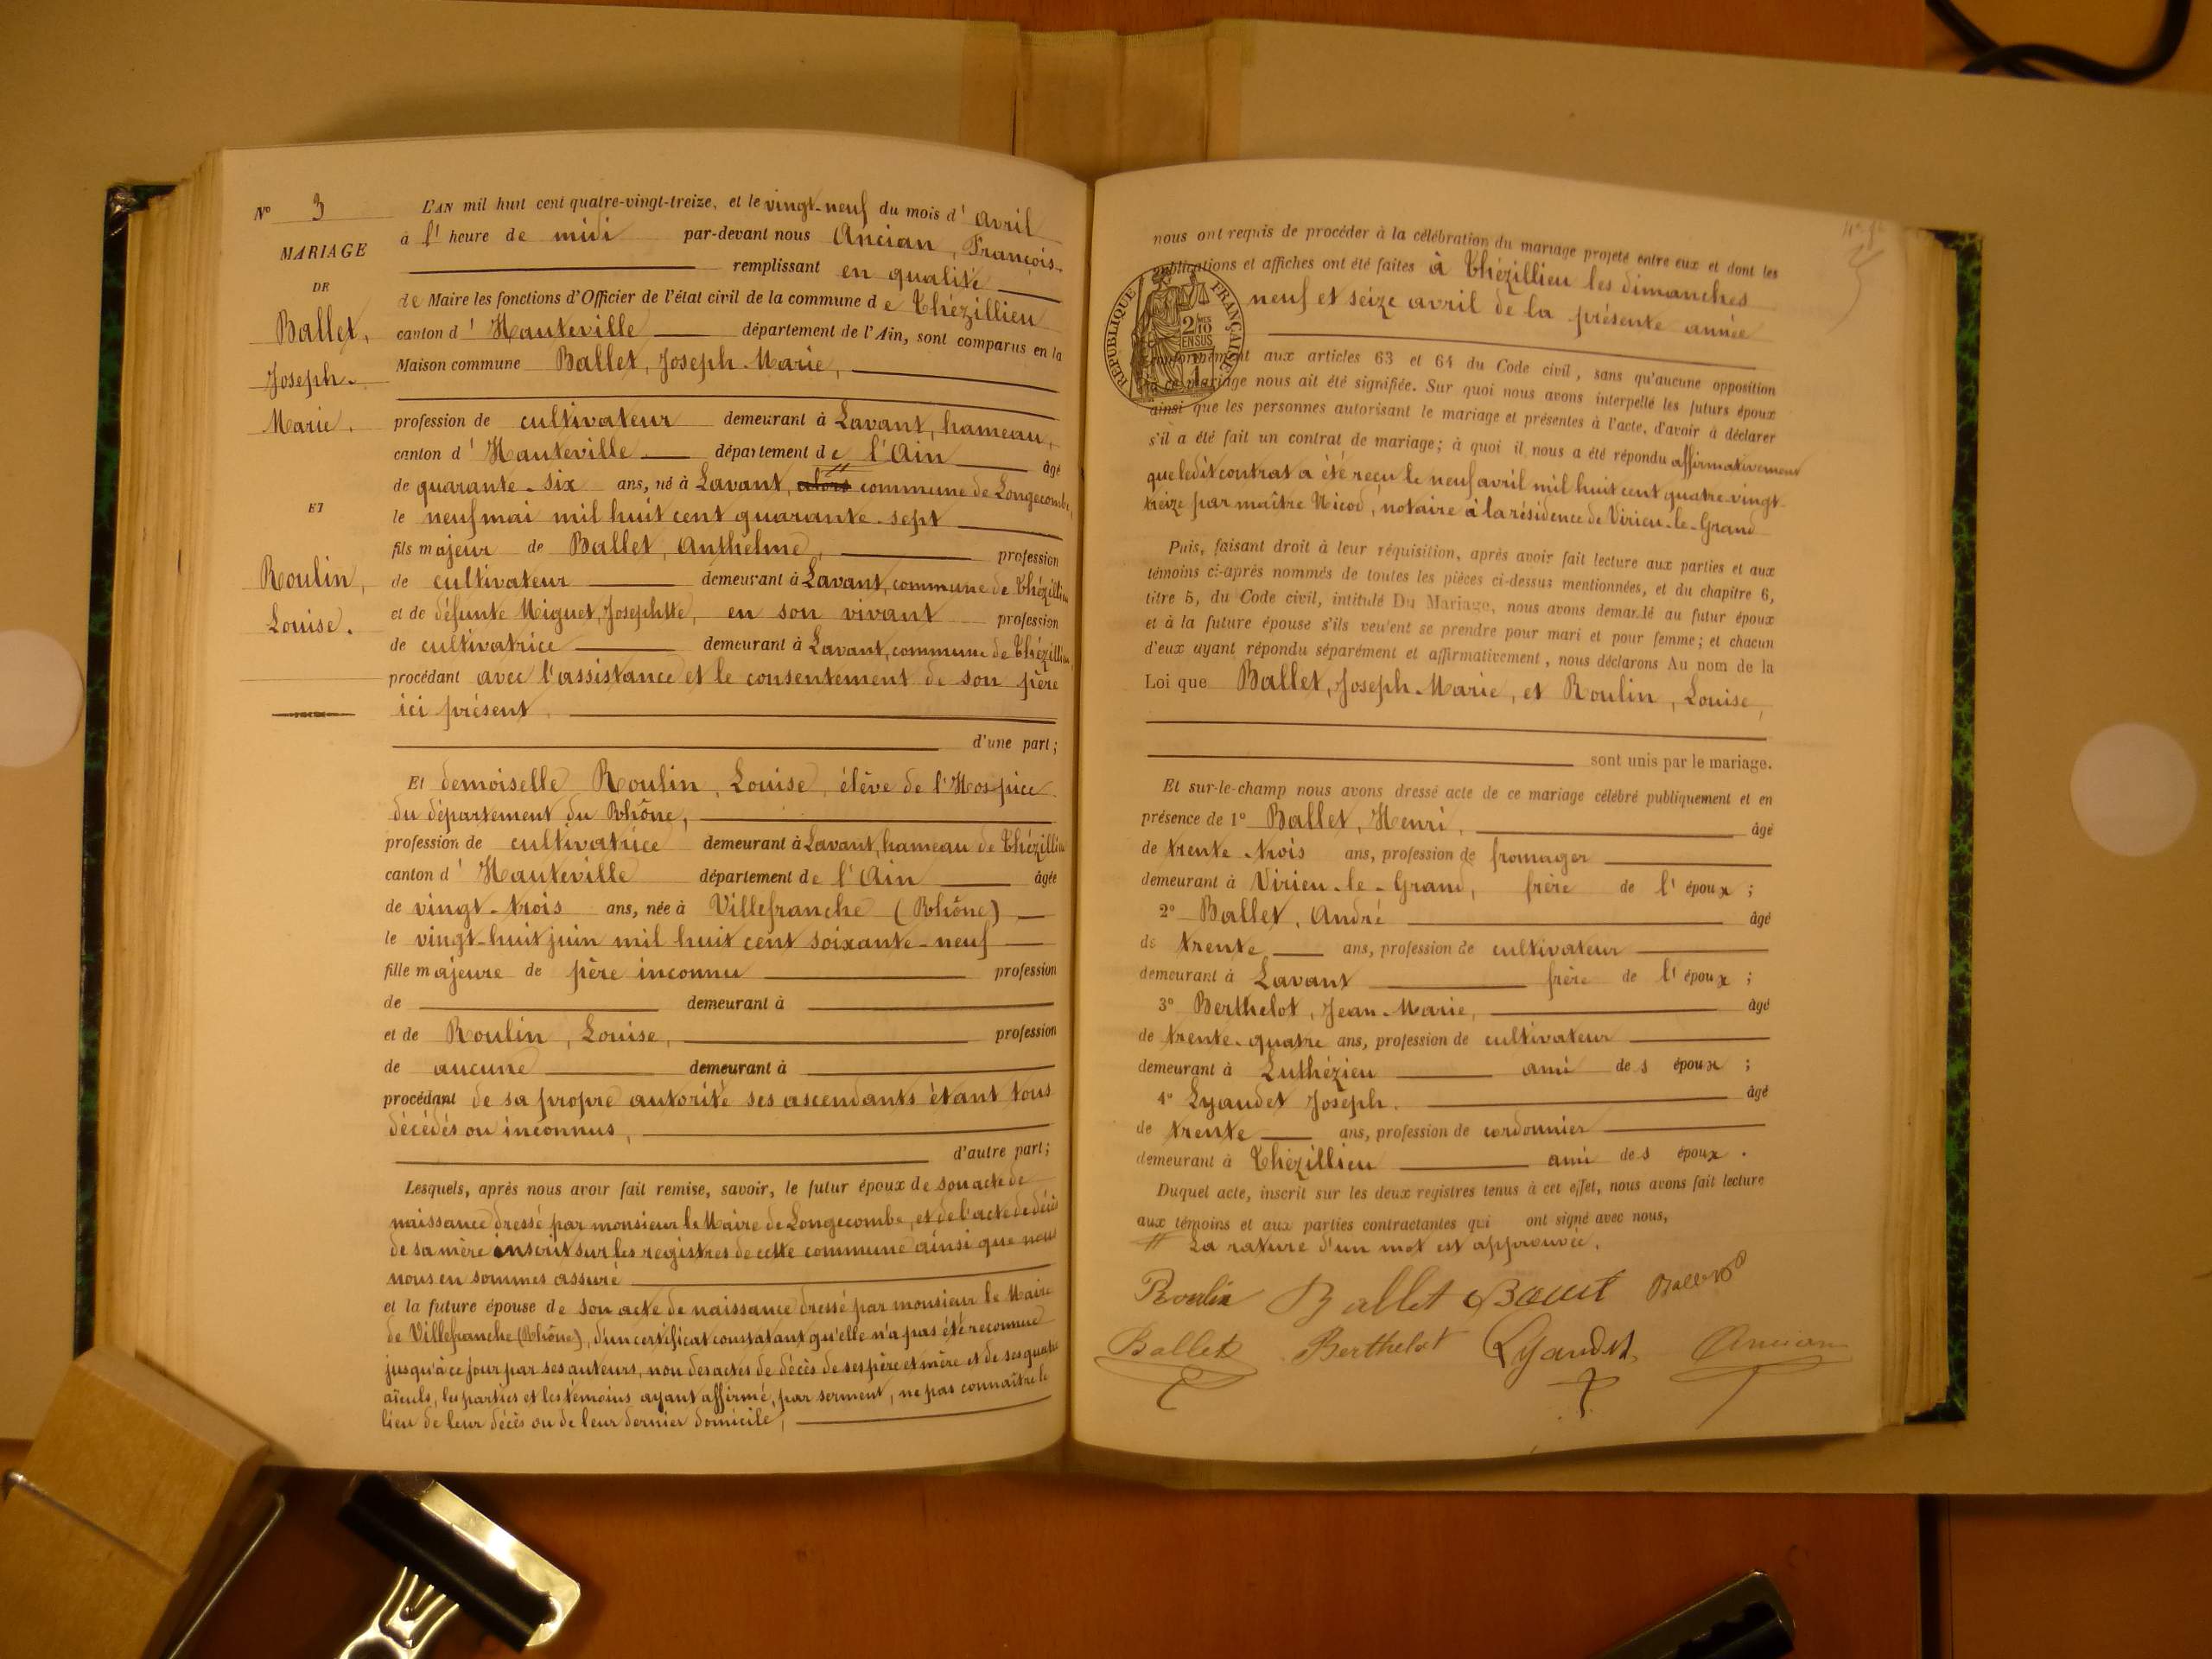 N° 3
MARIAGE
DE
Ballet,
Joseph-
Marie.
ET
Roulin,
Louise.
L'AN mil huit cent quatre-vingt-treize, et le vingt-neuf du mois d'avril
à l'heure de midi par-devant nous Ancian, François-
remplissant en qualité
de Maire les fonctions d'Officier de l'état civil de la commune de Thézillieu
canton d'Hauteville département de l'Ain, sont comparus en la
Maison commune Ballet, Joseph-Marie,
profession de cultivateur demeurant à Lavant, hameau,
canton d'Hauteville département de l'Ain âgé
de quarante-six ans, né à Lavant, alors commune de Longecombe,
le neuf mai mil huit cent quarante-sept
fils majeur de Ballet, Anthelme, profession
de cultivateur demeurant à Lavant, commune de Thézillieu
et de défunte Miguet, Josephtte, en son vivant profession
de cultivatrice demeurant à Lavant, commune de Thézillieu,
procédant avec l'assistance et le consentement de son père
ici présent,
d'une part;
Et demoiselle Roulin, Louise, élève de l'Hospice
du département du Rhône,
profession de cultivatrice demeurant à Lavant, hameau de Thézillieu
canton d'Hauteville département de l'Ain âgée
de vingt-trois ans, née à Villefranche (Rhône)
le vingt-huit juin mil huit cent soixante-neuf
fille majeure de père inconnu profession
de demeurant à
et de Roulin, Louise, profession
de aucune demeurant à
procédant de sa propre autorité ses ascendants étant tous
décédés ou inconnus,
d'autre part;
Lesquels, après nous avoir fait remise, savoir, le futur époux de son acte de
naissance dressé par monsieur le Maire de Longecombe, et de l'acte de décès
de sa mère inscrit sur les registres de cette commune ainsi que nous
nous en sommes assuré
et la future épouse de son acte de naissance dressé par monsieur le Maire
de Villefranche (Rhône), d'un certificat constatant qu'elle n'a pas été reconnue
jusqu'à ce jour par ses auteurs, non des actes de décès de ses père et mère et de ses quatre
aïeuls, les parties et les témoins ayant affirmé, par serment, ne pas connaître le
lieu de leur décès ou de leur dernier domicile;
nous ont requis de procéder à la célébration du mariage projeté entre eux et dont les
publications et affiches ont été faites à Thézillieu les dimanches
neuf et seize avril de la présente année
RÉPUBLIQUE FRANÇAISE
2 MES
10
EN SUS
conformément aux articles 63 et 64 du Code civil, sans qu'aucune opposition
à ce mariage nous ait été signifiée. Sur quoi nous avons interpellé les futurs époux
ainsi que les personnes autorisant le mariage et présentes à l'acte, d'avoir à déclarer
s'il a été fait un contrat de mariage; à quoi il nous a été répondu affirmativement
que ledit contrat a été reçu le neuf avril mil huit cent quatre-vingt-
treize par maître Nicod, notaire à la résidence de Virieu-le-Grand
Puis, faisant droit à leur réquisition, après avoir fait lecture aux parties et aux
témoins ci-après nommés de toutes les pièces ci-dessus mentionnées, et du chapitre 6,
titre 5, du Code civil, intitulé Du Mariage, nous avons demandé au futur époux
et à la future épouse s'ils veulent se prendre pour mari et pour femme; et chacun
d'eux ayant répondu séparément et affirmativement, nous déclarons Au nom de la
Loi que Ballet, Joseph-Marie, et Roulin, Louise,
sont unis par le mariage.
Et sur-le-champ nous avons dressé acte de ce mariage célébré publiquement et en
présence de 1° Ballet, Henri, âgé
de trente-trois ans, profession de fromager
demeurant à Virieu-le-Grand, frère de l'époux;
2° Ballet, André âgé
de trente ans, profession de cultivateur
demeurant à Lavant frère de l'époux;
3° Berthelot, Jean-Marie, âgé
de trente-quatre ans, profession de cultivateur
demeurant à Luthézieu ami des époux;
4° Lyaudet Joseph. âgé
de trente ans, profession de cordonnier
demeurant à Thézillieu ami des époux.
Duquel acte, inscrit sur les deux registres tenus à cet effet, nous avons fait lecture
aux témoins et aux parties contractantes qui ont signé avec nous,
La rature d'un mot est approuvée.
Roulin Ballet Ballet
Ballet Berthelot Lyaudet Ancian